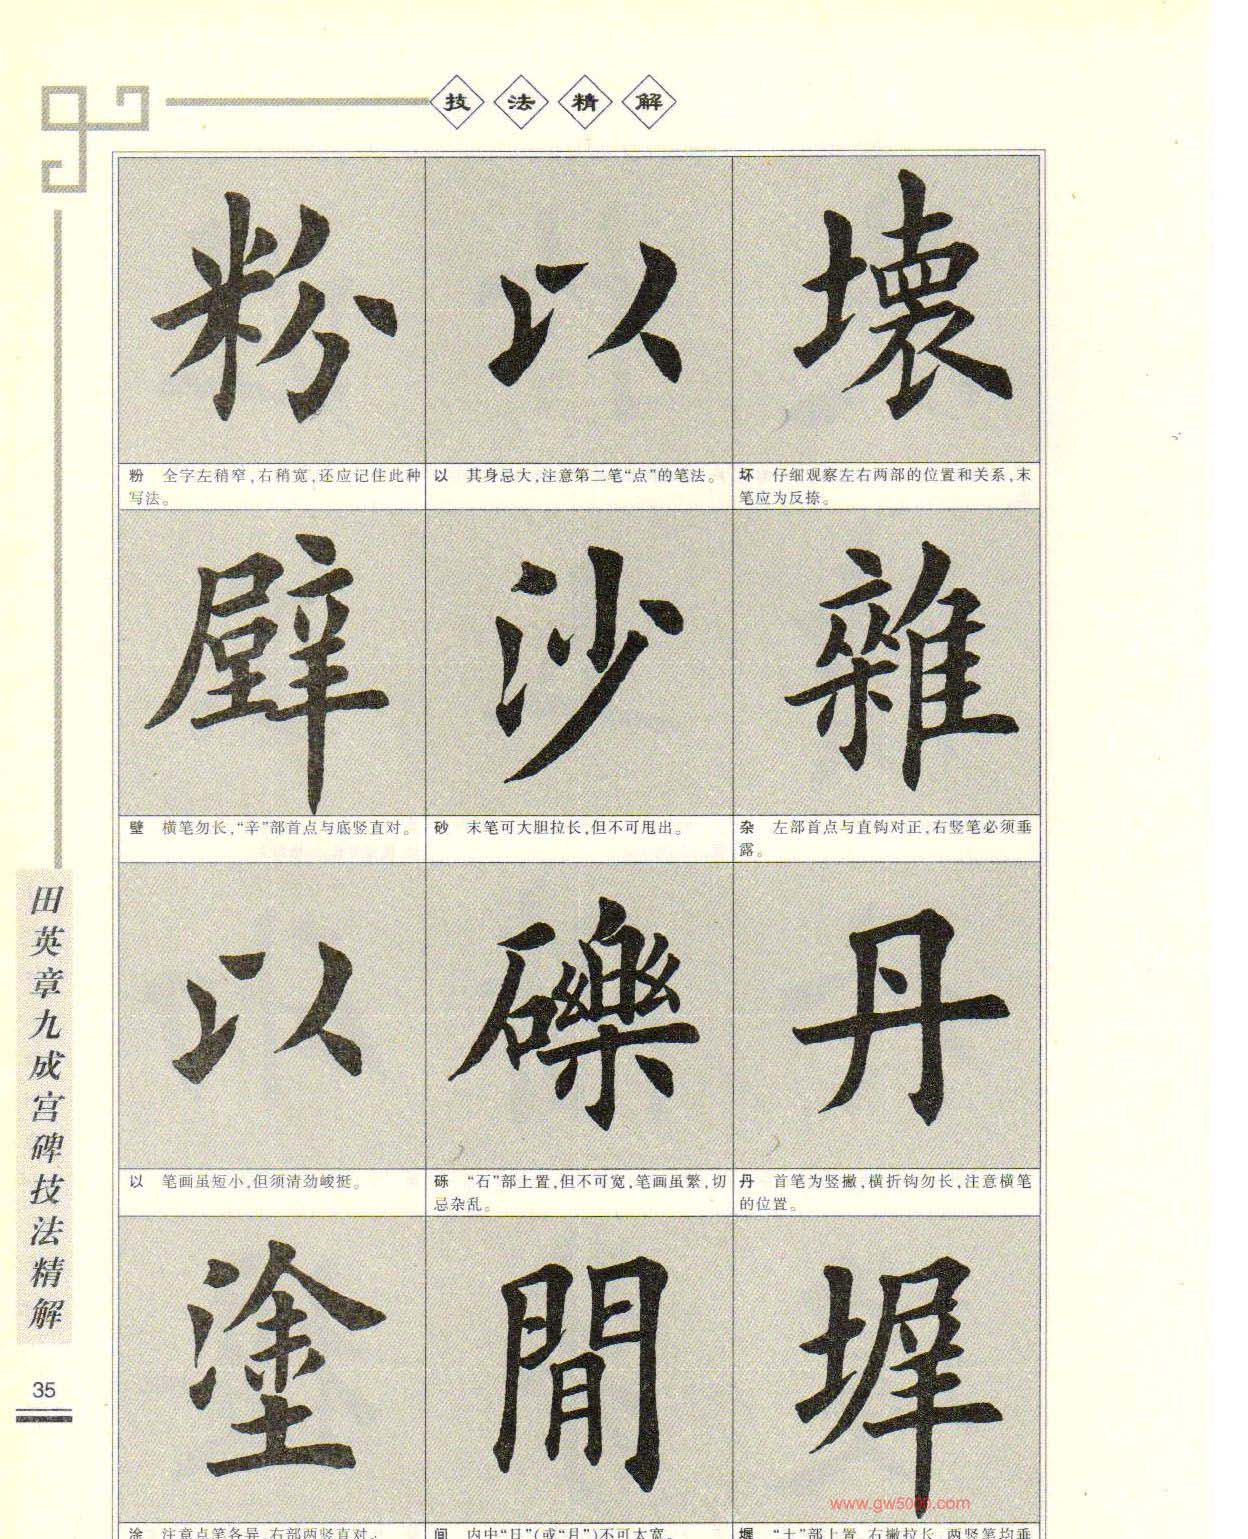 技法精解
粉 以 壞
粉 全字左稍窄,右稍宽,还应记住此种
写法。
以 其身忌大,注意第二笔“点”的笔法。
坏 仔细观察左右两部的位置和关系,末
笔应为反捺。
壁 沙 雜
壁 横笔勿长,“辛”部首点与底竖直对。
砂 末笔可大胆拉长,但不可甩出。
杂 左部首点与直钩对正,右竖笔必须垂
露。
以 礫 丹
以 笔画虽短小,但须清劲峻挺。
砾 “石”部上置,但不可宽,笔画虽繁,切
忌杂乱。
丹 首笔为竖撇,横折钩勿长,注意横笔
的位置。
塗 間 墀
www.gw5000.com
涂 注意点笔各异,右部两竖直对。
间 内中“日”(或“月”)不可太宽。
墀 “土”部上置,右撇拉长,两竖笔均垂
田英章九成宫碑技法精解
35